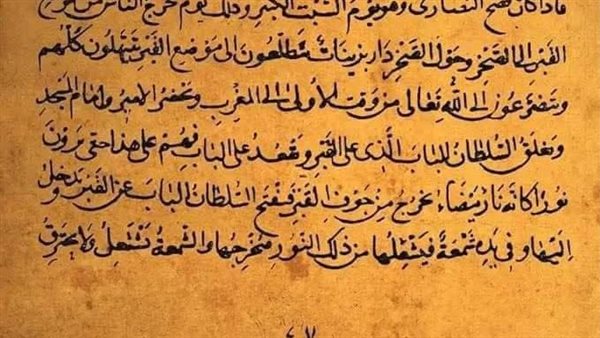 فاذا كان فصح النصارى وهو يوم السبت الكبير وذلك يوم يخرج الناس من موضع
القبر الى الصخر وحول الصخر دار بزينات يتطلعون الى موضع القبر يبتهلون كلهم
ويتضرعون الى الله تعالى من وقت الاولى الى المغرب ويحضر الامير وامام المسجد
ويغلق السلطان الباب الذى على القبر ويقعد على الباب فهم على هذا حتى يرون
نورا كانه نار بيضاء يخرج من جوف القبر فيفتح السلطان الباب عن القبر ويدخل
اليه وفى يده شمعة فيشعلها من ذلك النور فيخرجها والشمعة تشتعل ولا يحترق
٤٧